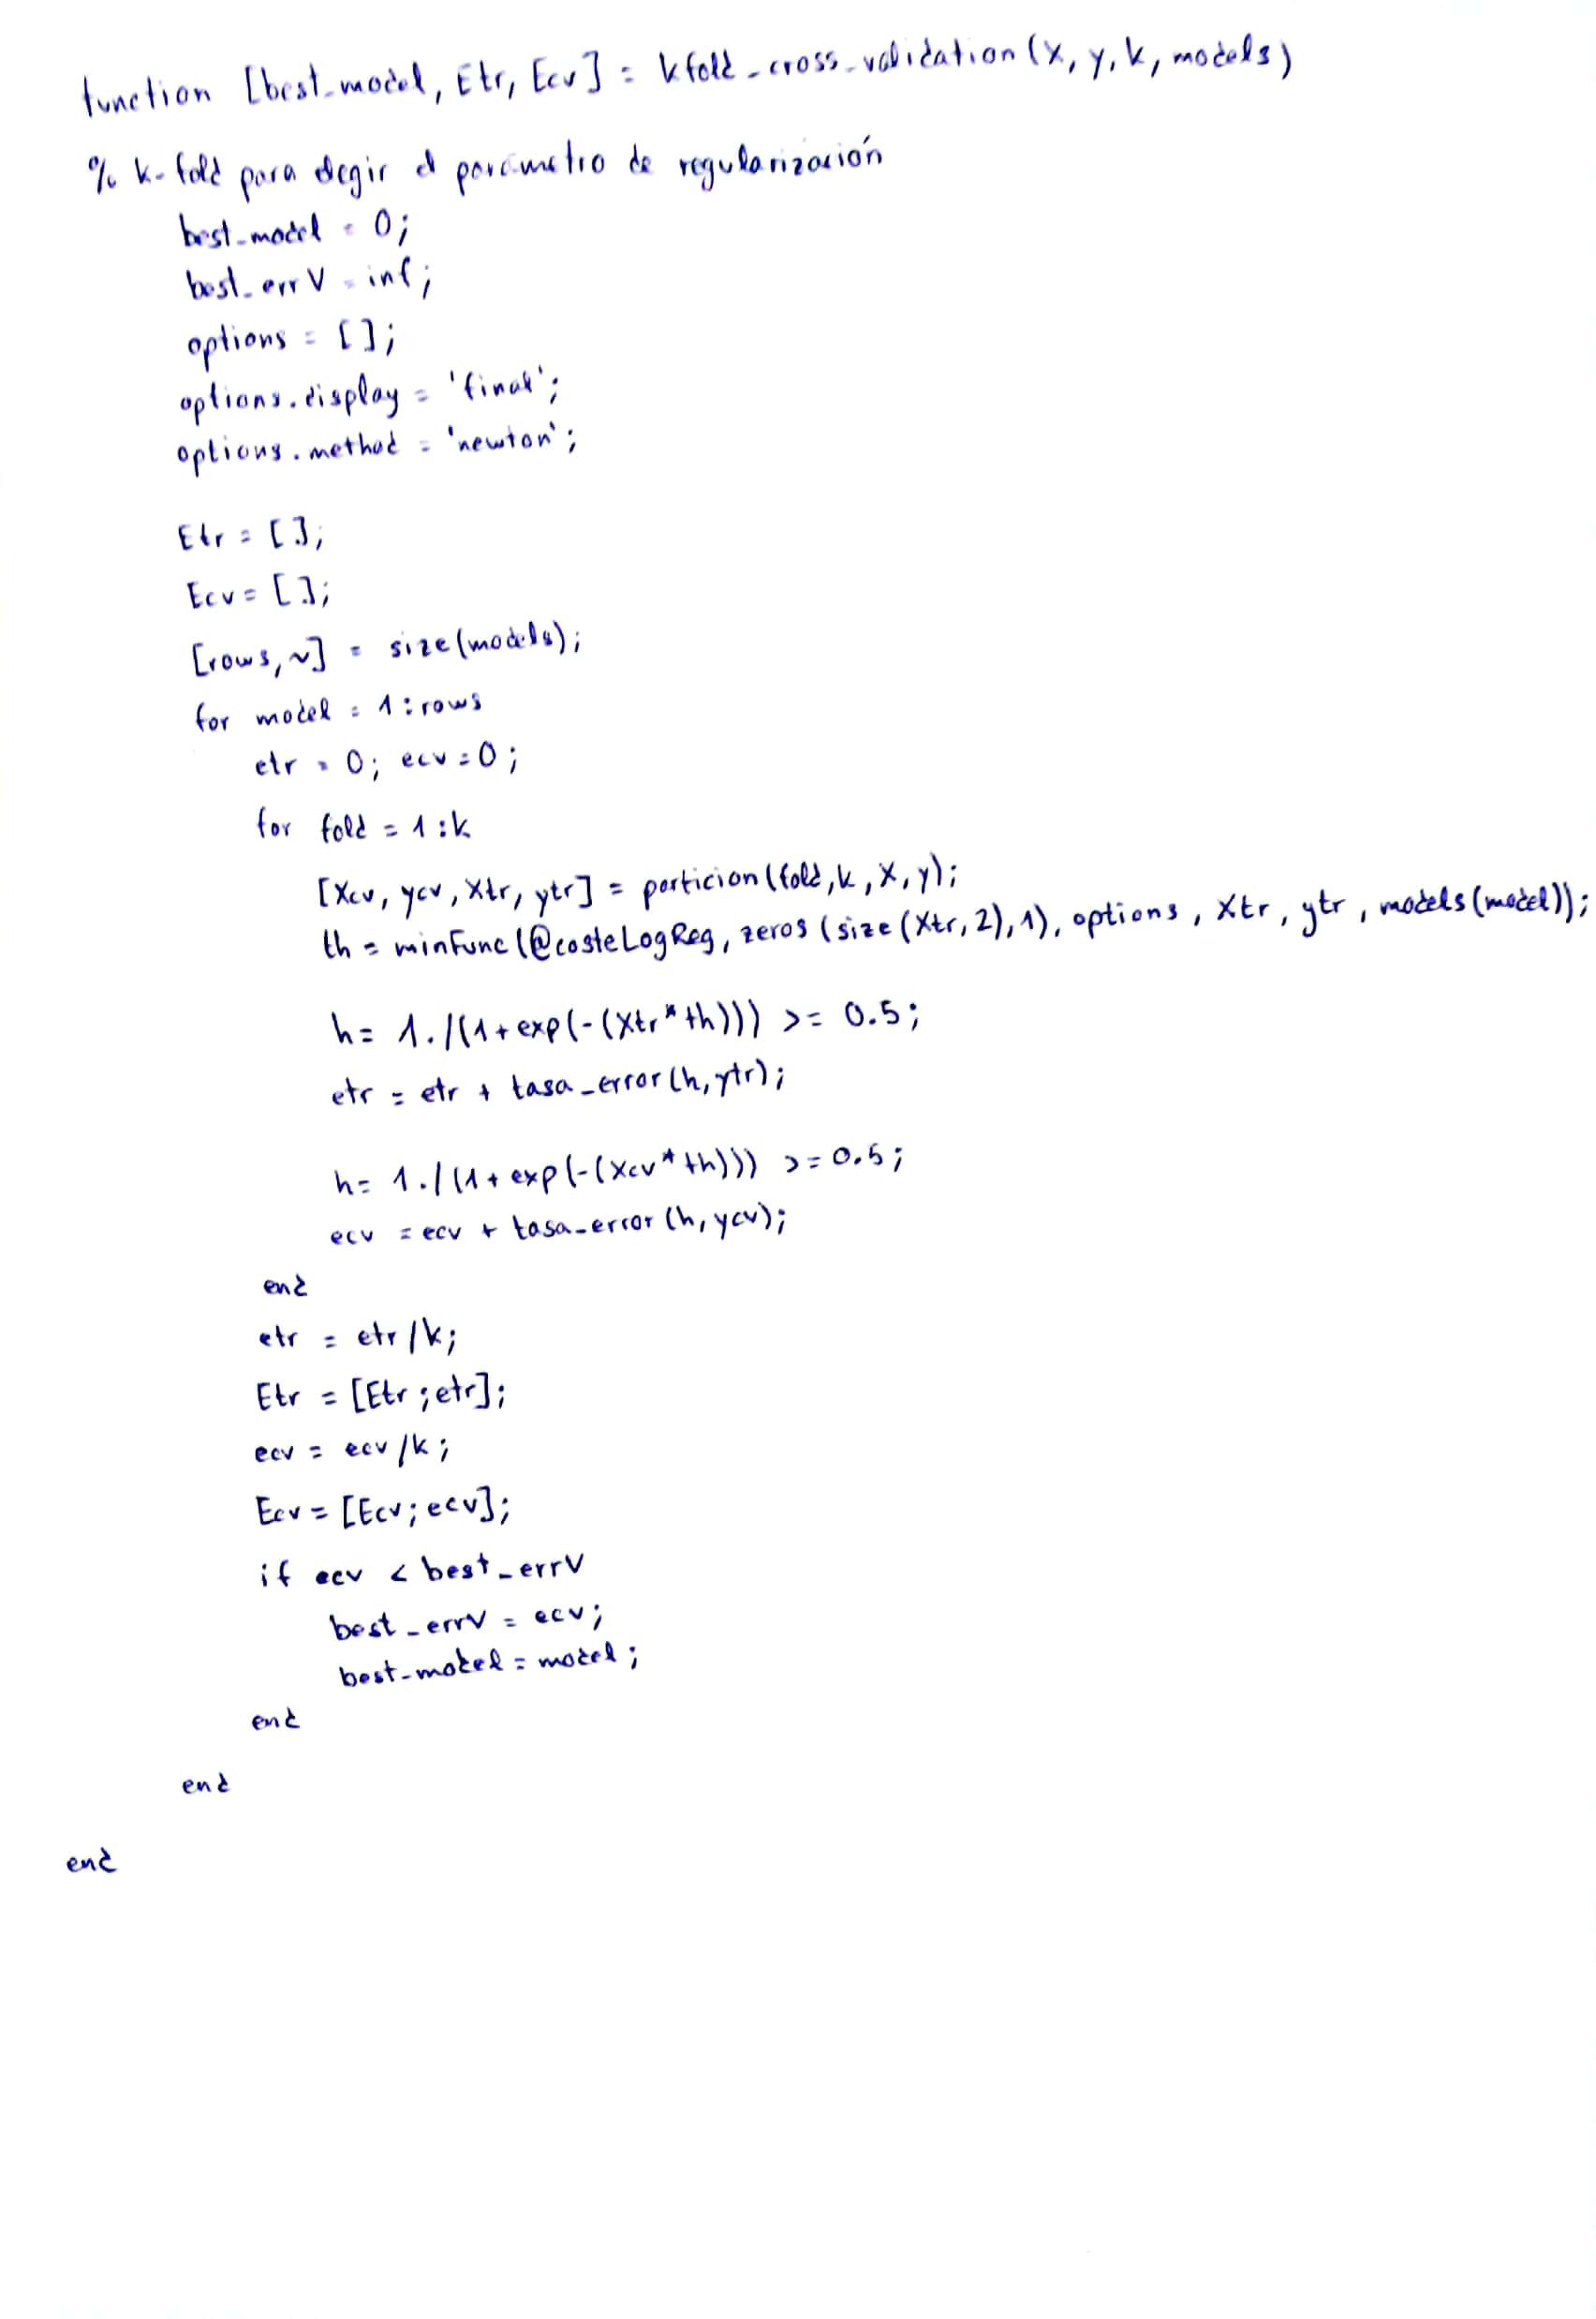 function [best_model, Etr, Ecv] = kfold_cross_validation(X, y, k, models)
% k-fold para elegir el parámetro de regularización
best_model = 0;
best_errV = inf;
options = [];
options.display = 'final';
options.method = 'newton';
Etr = [];
Ecv = [];
[rows, ~] = size(models);
for model = 1:rows
etr = 0; ecv = 0;
for fold = 1:k
[Xcv, ycv, Xtr, ytr] = particion(fold, k, X, y);
th = minFunc(@costeLogReg, zeros(size(Xtr, 2), 1), options, Xtr, ytr, models(model));
h = 1./(1+exp(-(Xtr*th))) >= 0.5;
etr = etr + tasa_error(h, ytr);
h = 1./(1+exp(-(Xcv*th))) >= 0.5;
ecv = ecv + tasa_error(h, ycv);
end
etr = etr/k;
Etr = [Etr; etr];
ecv = ecv/k;
Ecv = [Ecv; ecv];
if ecv < best_errV
best_errV = ecv;
best_model = model;
end
end
end